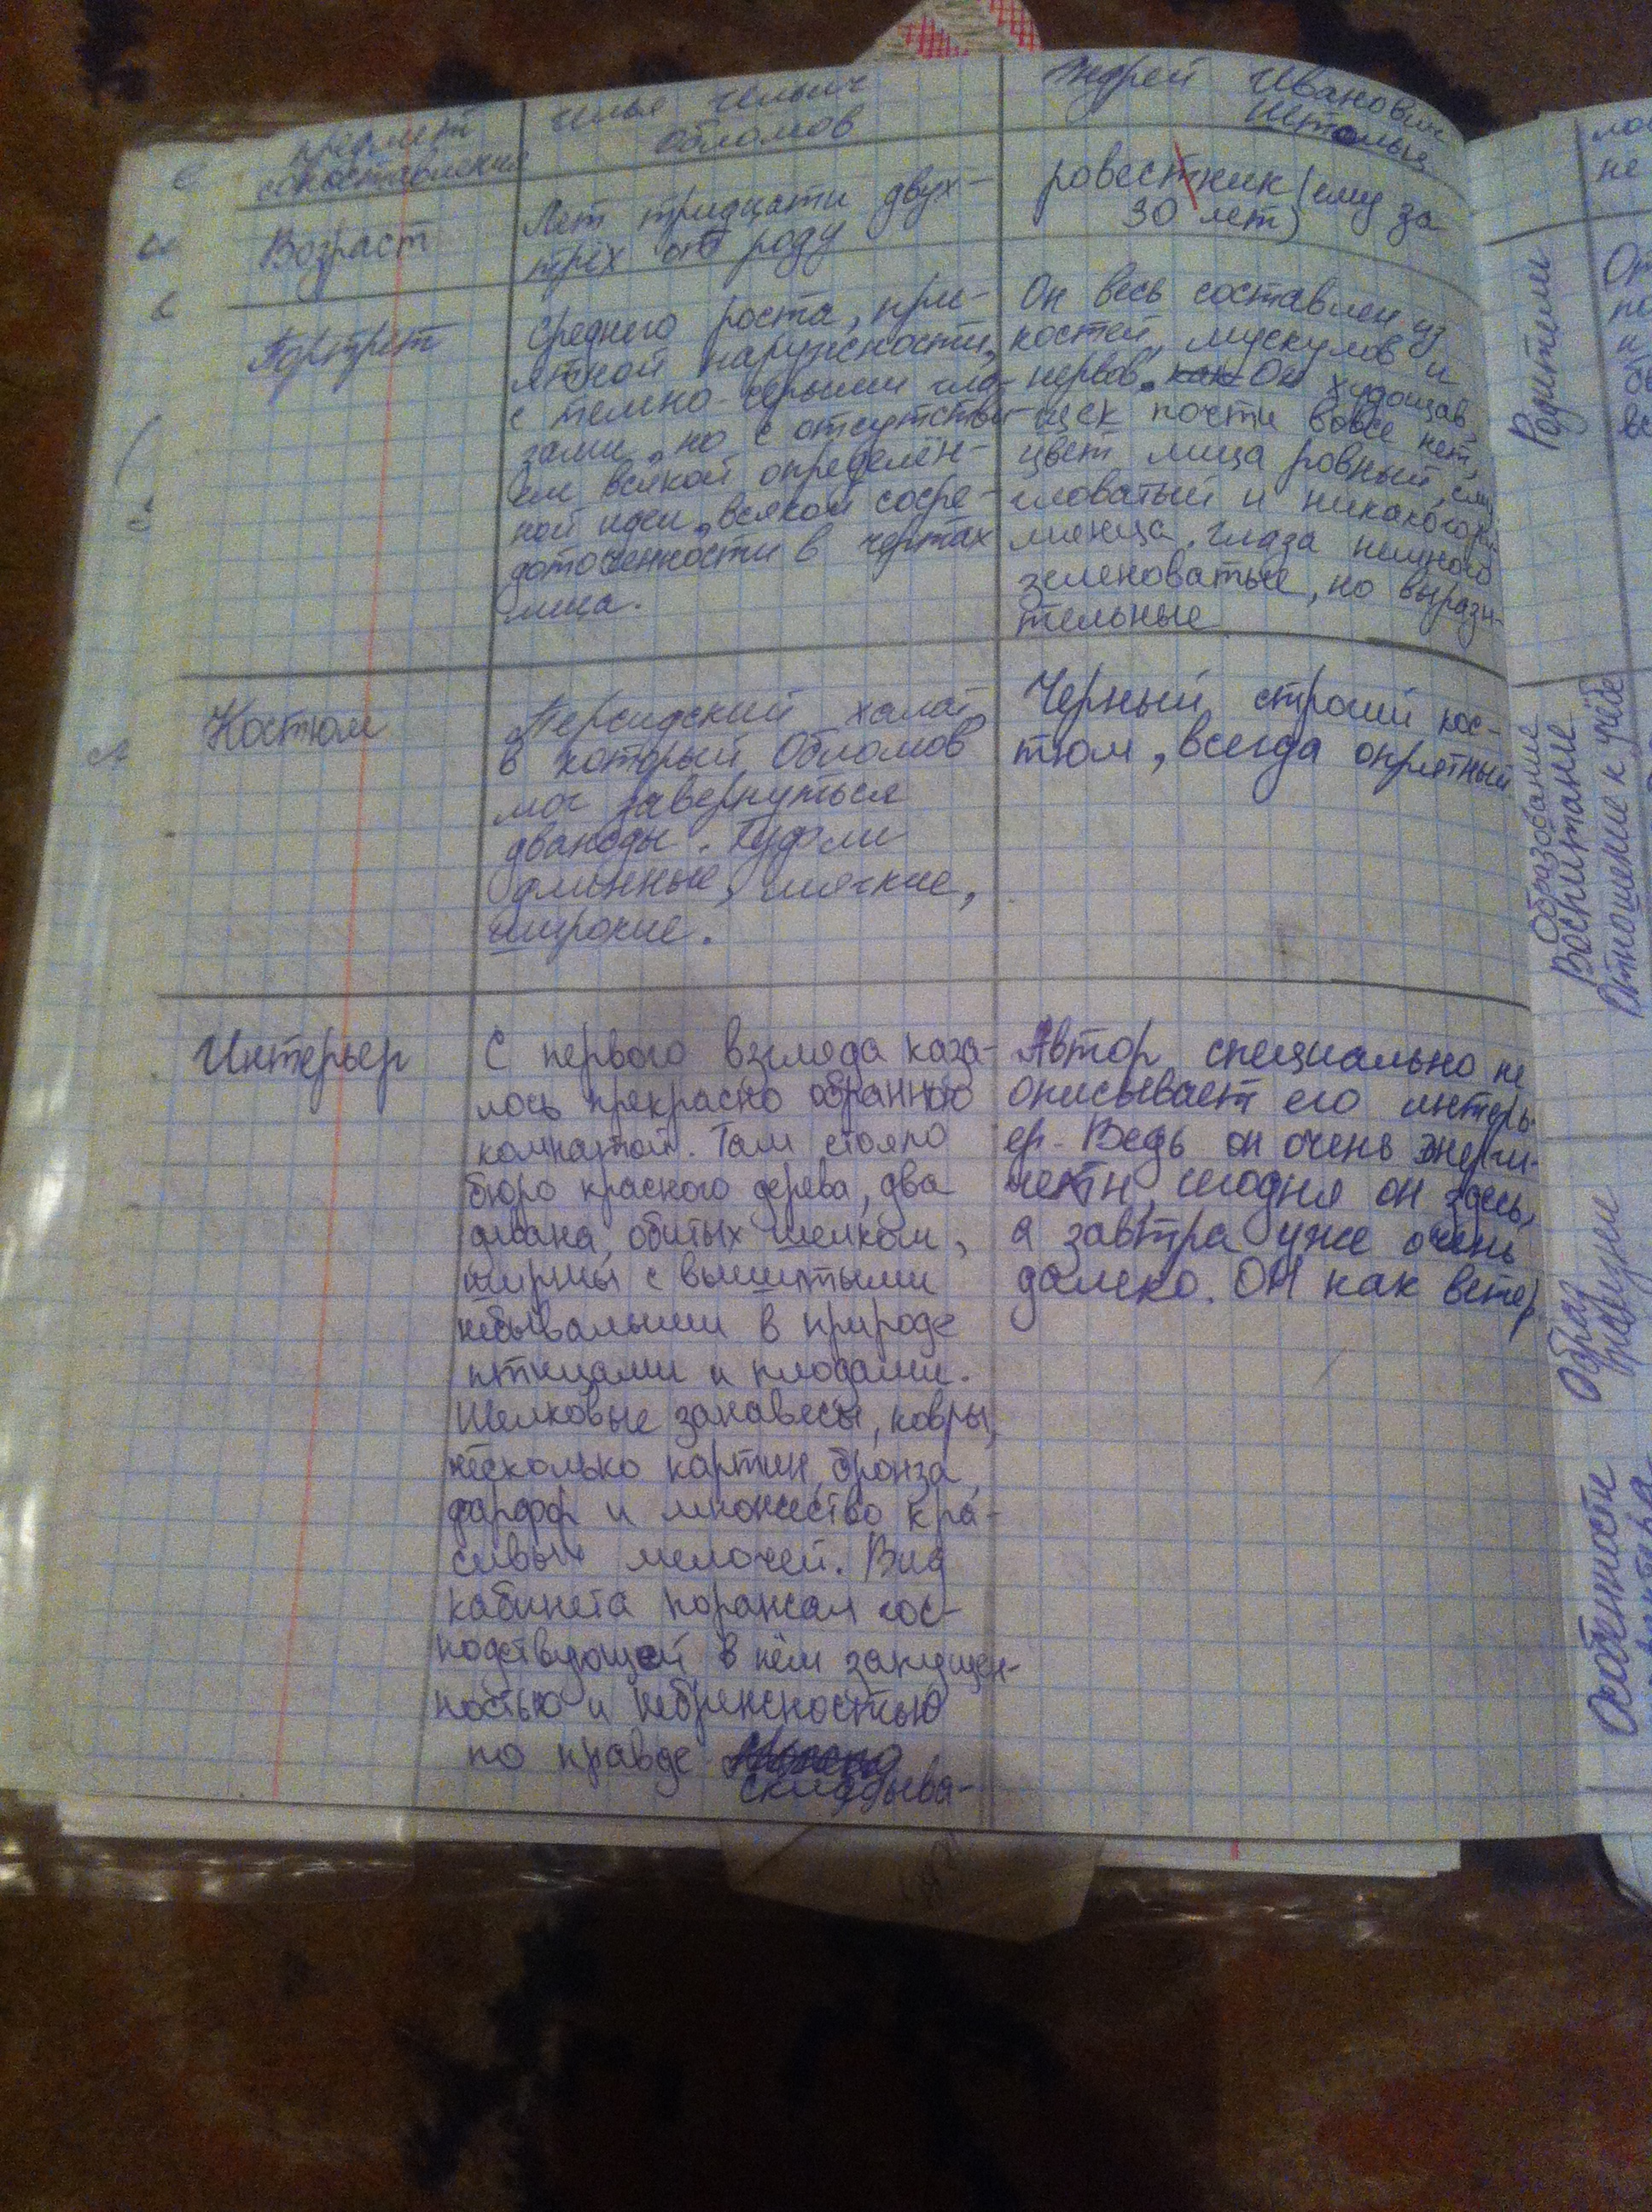 предмет
сопоставления
Илья Ильич
Обломов
Андрей Иванович
Штольц
Возраст
Лет тридцати двух-
трёх от роду
ровестник (ему за
30 лет)
Портрет
Среднего роста, при-
ятной наружности,
с темно-серыми гла-
зами, но с отсутстви-
ем всякой определён-
ной идеи, всякой сосре-
доточенности в чертах
лица.
Он весь составлен из
костей, мускулов и
нервов. Он худощав,
щек почти вовсе нет,
цвет лица ровный, сму-
гловатый и никакого ру-
мянца. Глаза немного
зеленоватые, но вырази-
тельные
Костюм
Персидский халат,
в который Обломов
мог завернуться
дважды. Туфли
длинные, мягкие,
широкие.
Черный, строгий кос-
тюм, всегда опрятный.
Интерьер
С первого взгляда каза-
лось прекрасно убранною
комнатой. Там стояло
бюро красного дерева, два
дивана, обитых шелком,
ширмы с вышитыми
небывалыми в природе
птицами и плодами.
Шелковые занавесы, ковры,
несколько картин, бронза,
фарфор и множество кра-
сивых мелочей. Вид
кабинета поражал гос-
подствующей в нём запущен-
ностью и небрежностью
по правде
складыва-
Автор специально не
описывает его интерь-
ер. Ведь он очень энерги-
чен, сегодня он здесь,
а завтра уже очень
далеко. ОН как ветер
Родители
Образование
Воспитание
Отношение к учёбе
Образ
жизни
Особенности